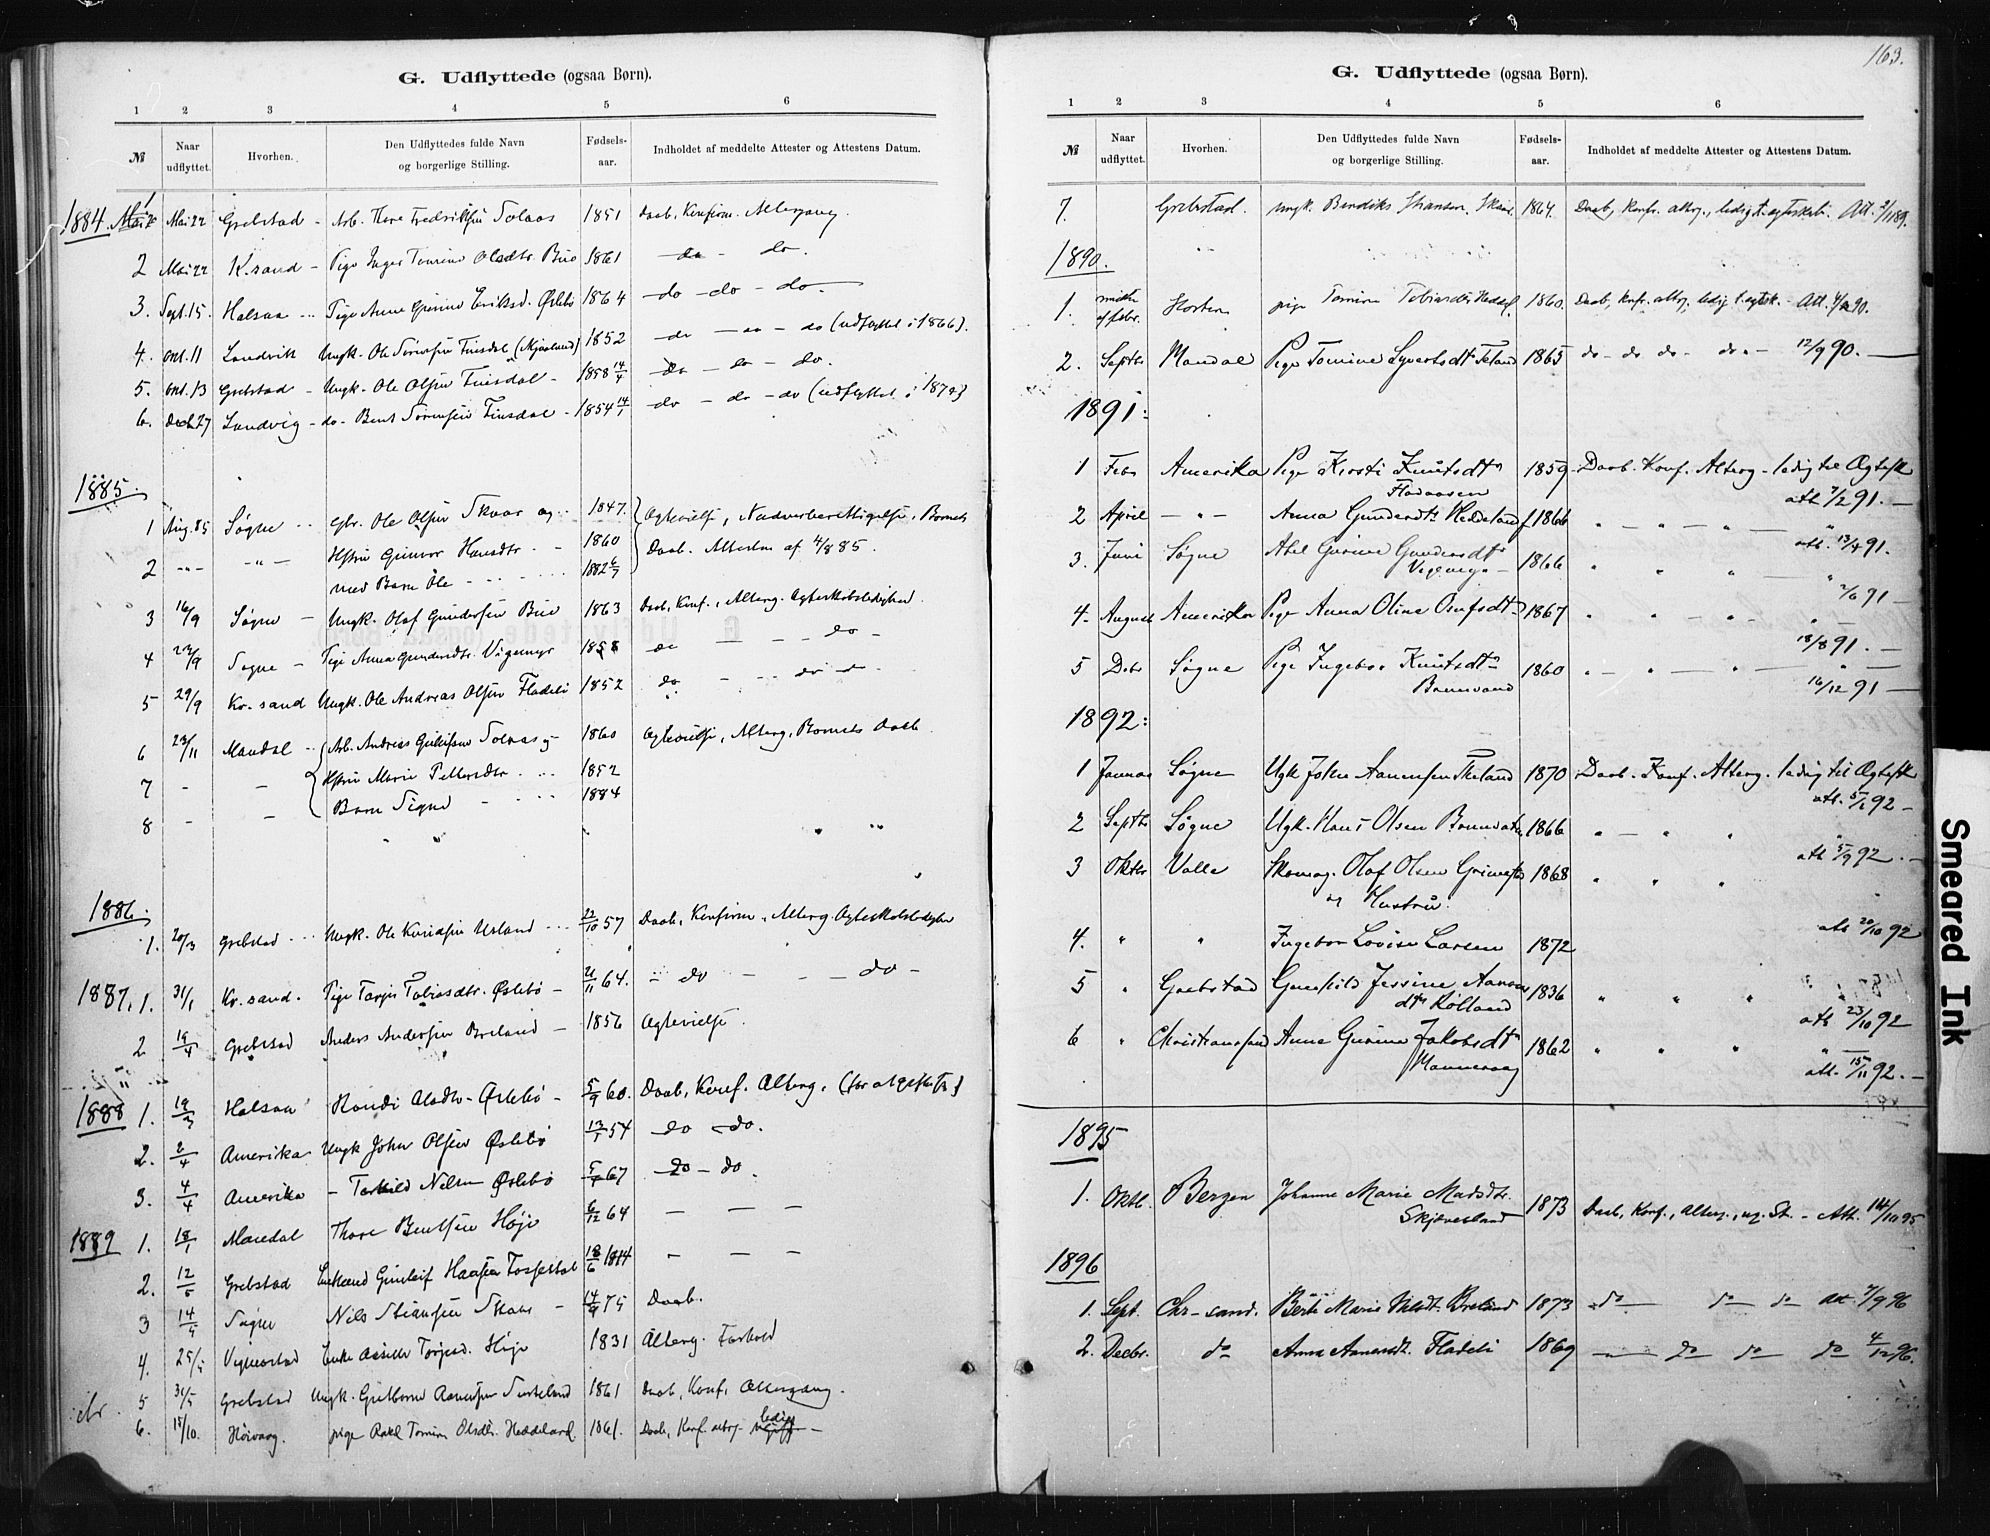 G. Udflyttede (ogsaa Børn).
1 2 3 4 5 6
№ Naar udflyttet. Hvorhen. Den Udflyttedes fulde Navn og borgerlige Stilling. Fødsels-aar. Indholdet af meddelte Attester og Attestens Datum.
1884. 1 Mai 22 Grebstad - Arb. Fredriksen Solaas 1851 Daab, Konfirm. Altergang.
2 Mai 22 K.sand - Pige Inger Tomine Olsdtr. Buo 1861 do - do.
3. Sept. 15. Halsaa - Pige Anne Gurine Eriksd. Øslebø 1864 do - do - do.
4. Okt. 11 Landvik Ungk. Ole Sørensen Finsdal 1852 do - do - do (udflyttet i 1866).
5. Okt. 13 Grebstad - Ungk. Ole Olsen Finsdal - 1858 14/4 do - do - do.
6. Decb 27 Landvig - do - Bent Sørensen Finsdal - 1854 14/1 do - do - do
1885.
1 Aug. 85 Søgne - gbr. Ole Olsen Skaar og 1847. Ægtevielse, Nadverberettigelse, Barnets
2 - " - - " - Hstru Gunvor Hansdtr. - 1860 Daab. Attester af 4/8 85.
med Barn Ole - 1882 6/7
3 16/9 Søgne - Ungk. Olaf Gundersen Buo 1863 Daab, Konf., Alterg. Ægteskabsledighed.
4 23/9 Sogne - Pige Anna Gundersdtr. Vigemyr 1858 do - - do -
5 29/9 Kr. sand Ungk. Ole Andreas Olsen Fladebø 1852 do - - do do -
6 23/11 Mandal - Arb. Andreas Solaas og 1860 Ægtevielse, Alterg., Barnets Daab.
7 - - Hstru Marie Pettersdtr. 1852
8 - - Barn Signe - 1884
1886.
1. 20/3 Grebstad Ungk. Ole Knudsen Usland 22/10 57 Daab, Konfirm., Alterg. Ægteskabsledighed
1887. 1. 31/1 Kr. sand. Pige Tobiasdtr. Øslebø - 21/11 64. - do - - do -
2 19/4 Grebstad Anders Andersen Breland - 1856 Ægtevielse.
1888 1. 19/3 Halsaa Olsdtr. Øslebø - 5/9 60. Daab, Konf. Alterg.
2. 2/4 Amerika Ungk John Olsen Øslebø 13/1 54 do - do.
3. 4/4 Amerika - Torkild Nilsen Øslebø 67 do - do.
1889 1. 18/1 Mandal Thore Bentsen Høje 6/12 64 - - -
2. 12/5 Grebstad Enkemand Gunleif Hansen 18/6 1814 - - -
3 14/5 Søgne Nils Skaar - 75 Daab.
4. 25/5 Vigmostad Enke Høje 1831 Alterg. Forhold
5 31/5 Grebstad Ungk. Aanensen 1861 Daab, Konf, Altergang.
6. 15/10. Høivaag. pige Rakel Tomine Olsdtr. Heddeland. 1861. Daab, Konf. alterg. ledig
163.
G. Udflyttede (ogsaa Børn).
1 2 3 4 5 6
№ Naar udflyttet. Hvorhen. Den Udflyttedes fulde Navn og borgerlige Stilling. Fødsels-aar. Indholdet af meddelte Attester og Attestens Datum.
7. Grebstad. ungk. Bendiks Hansen. 1864. Daab, Konf. alterg., ledig t. ægteskab. Att. 2/11 89.
1890.
1. midte af febr. Horten pige Tomine Tobiasdtr 1860. Daab, Konf. alterg., ledig t. ægtsk. Att. 90.
2. Septbr Mandal Pige Tomine Syvertsdtr 1865 do - do do - do - 12/9 90. -
1891:
1 Febr Amerika Pige Kirsti Knutsdtr 1859 Daab. Konf. Alterg - ledig til Ægtesk
Fladaasen att 7/2 91. -
2 April - " - Anna Gundersdtr Heddeland f 1866 " - " - " - "
att. 13/4 91.
3. Juni Søgne Abel Gurine Gundersdtr 1866 " " " - "
Vigemyr - 2/6 91 -
4. August Amerika Pige Anna Oline Olufsdtr 1867 " " - " - "
18/8 91. -
5 Debr Søgne Pige Ingebor Knutsdtr 1860 " - " - " - "
Brunvand 16/12 91 -
1892:
1 Januar Søgne Ugk John Aanensen 1870 Daab. Konf. Alterg. ledig til Ægtesk
att. 5/1 92 -
2 Septbr Søgne Ugk. Hans Olsen 1866 " - " "
att 5/9 92. -
3 Oktbr Valle Skomag. Olaf Olsen 1868 " " "
og Hustru. att 20/10 92
4. " " Ingebor Lovise Larsen 1872
5 " Grebstad Gunhild Jessine Aanensdtr Kølland 1836 " " " "
att 23/10 92
6 " Christianssand Anne Gurine Jakobsdtr 1862 " " " "
att. 15/11 92. -
1895
1. Oktb. Bergen Johanne Marie Madsdtr. 1873 Daab, Konf., Alterg., ug. St. - Att. 14/10 95
Skjævesland
1896
1. Sept. Chr-sand. Berte Marie Breland 1873 do - do do Att. 7/9 96
2. Decbr. do Anna Aanensdt. Fladebø 1869 - do do do 4/12 96.
Smeared Ink